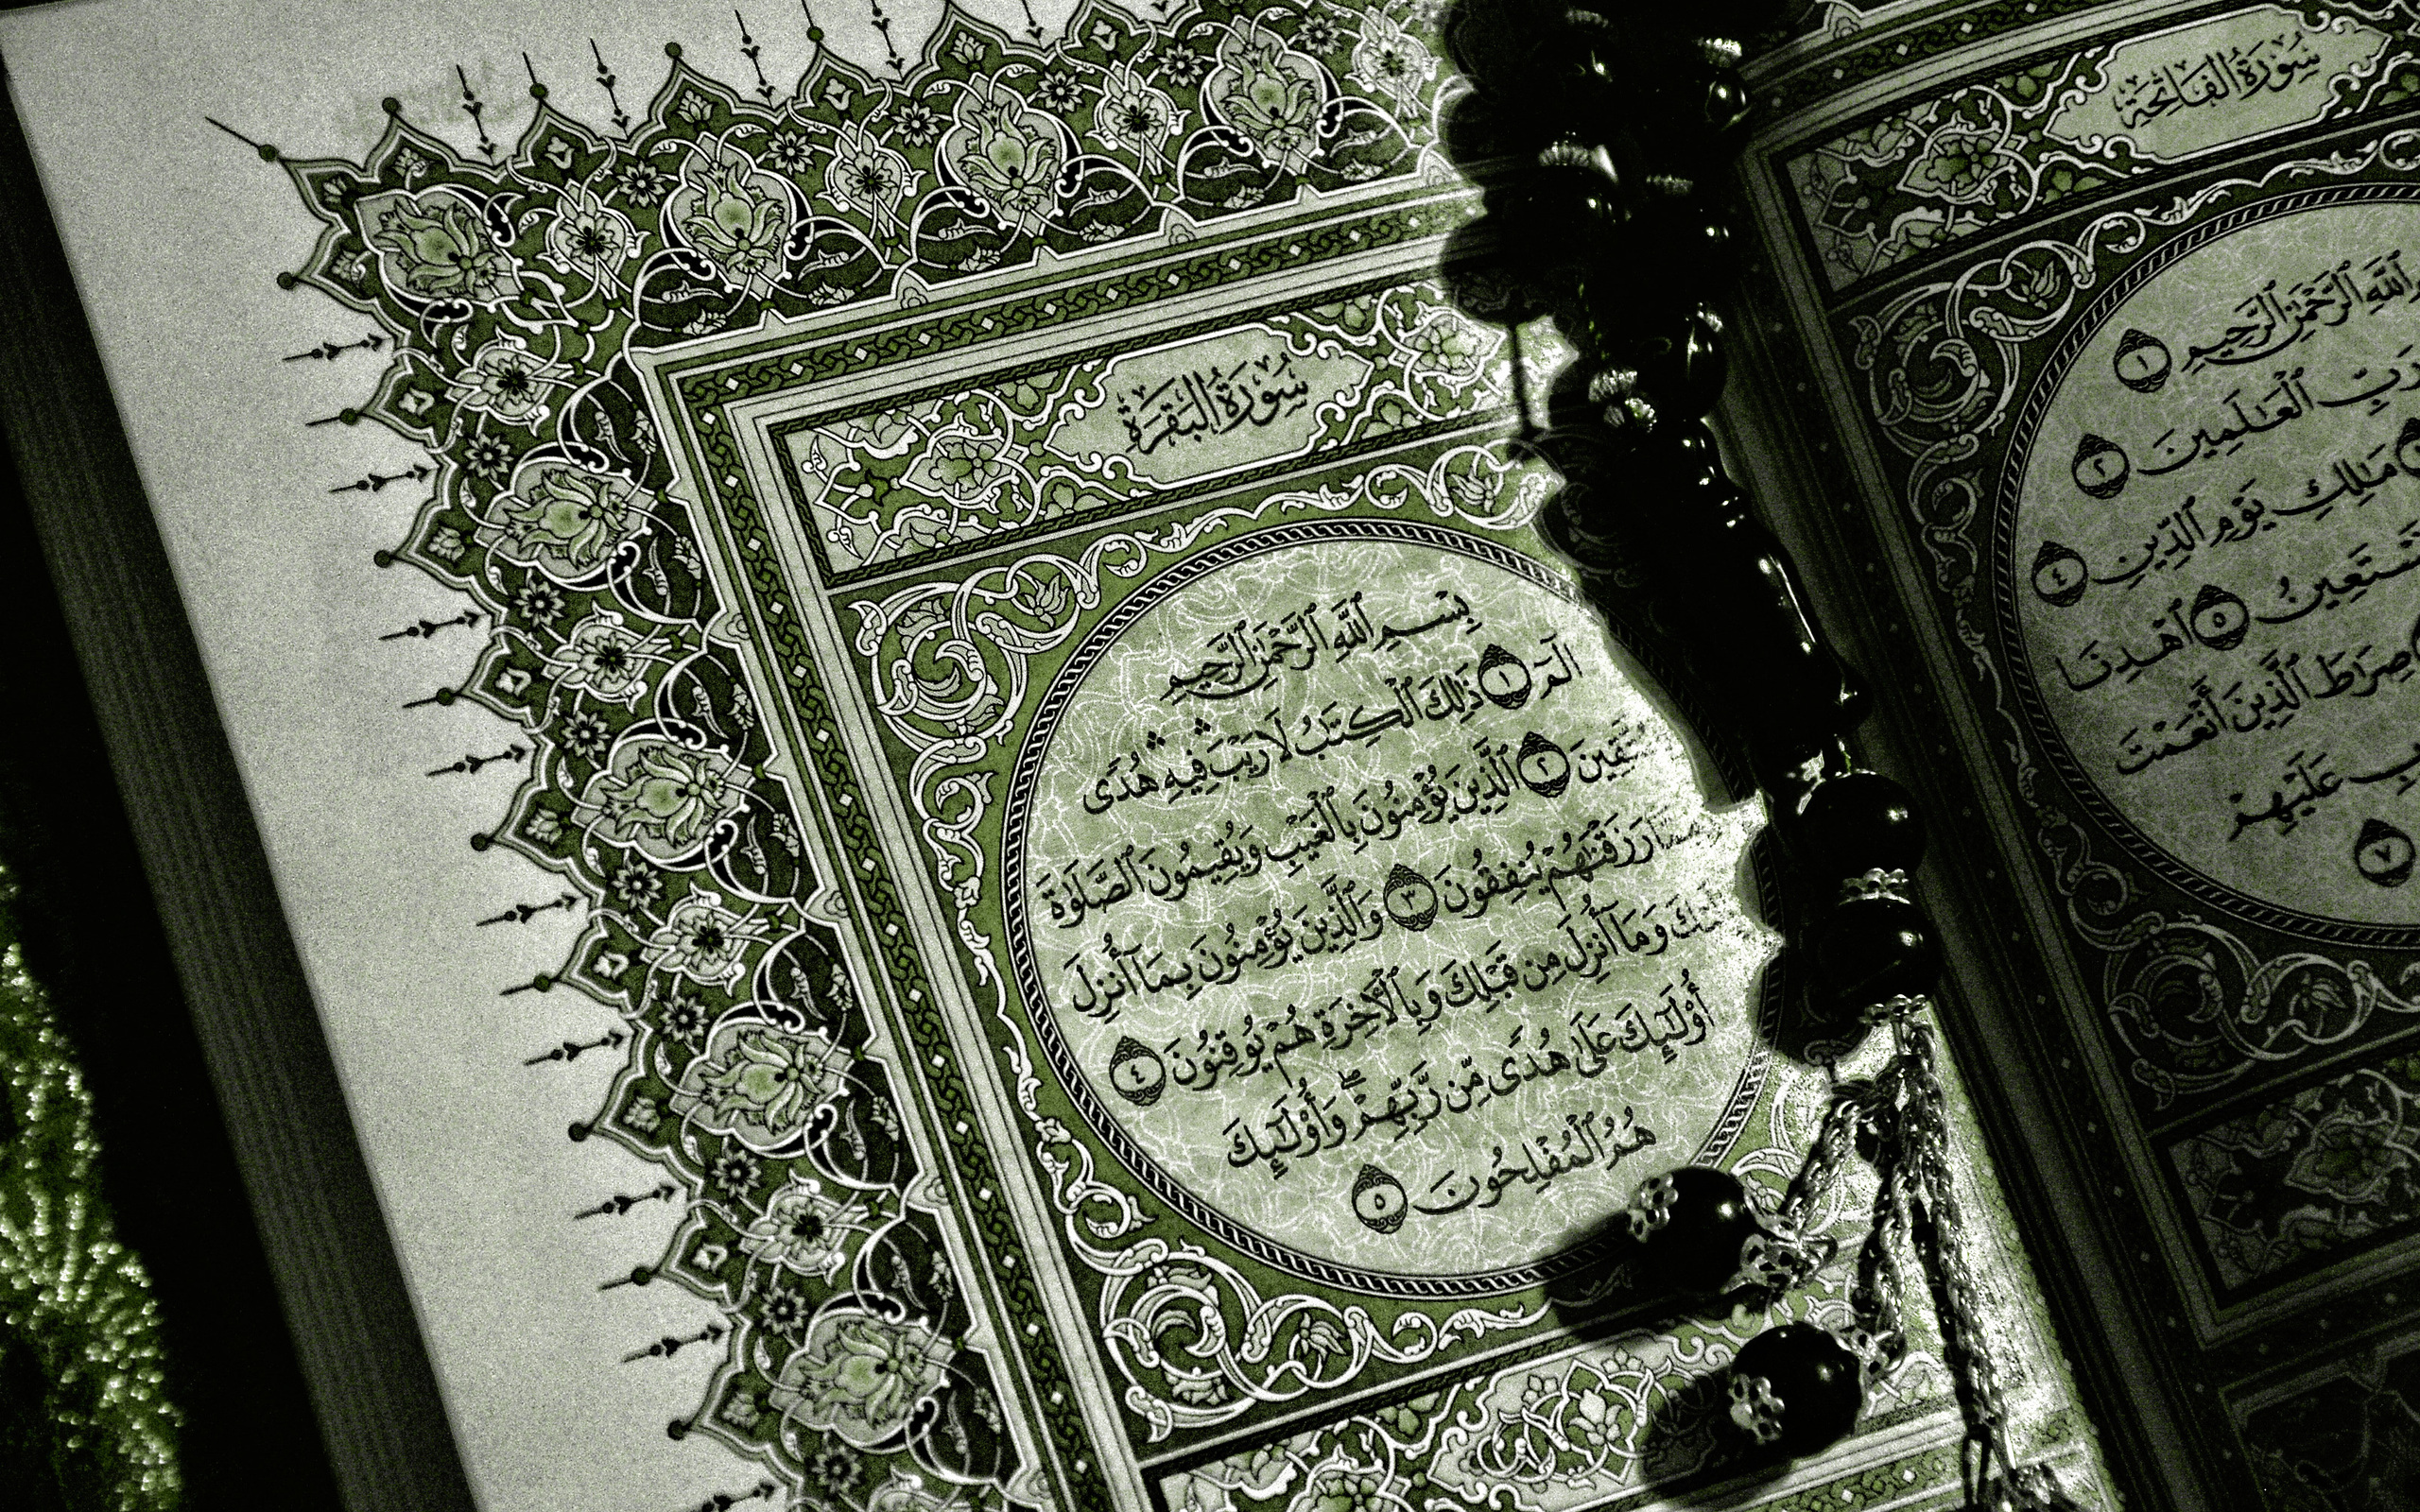 سُورَةُ الفَاتِحَةِ
ٱللَّهِ ٱلرَّحْمَٰنِ ٱلرَّحِيمِ ١
رَبِّ ٱلْعَٰلَمِينَ ٢
مَٰلِكِ يَوْمِ ٱلدِّينِ ٤
نَسْتَعِينُ ٥ ٱهْدِنَا
صِرَٰطَ ٱلَّذِينَ أَنْعَمْتَ
عَلَيْهِمْ
٧
سُورَةُ البَقَرَةِ
بِسْمِ ٱللَّهِ ٱلرَّحْمَٰنِ ٱلرَّحِيمِ
الٓمٓ ١ ذَٰلِكَ ٱلْكِتَٰبُ لَا رَيْبَ ۛ فِيهِ ۛ هُدًى
٢ ٱلَّذِينَ يُؤْمِنُونَ بِٱلْغَيْبِ وَيُقِيمُونَ ٱلصَّلَوٰةَ
رَزَقْنَٰهُمْ يُنفِقُونَ ٣ وَٱلَّذِينَ يُؤْمِنُونَ بِمَآ أُنزِلَ
وَمَآ أُنزِلَ مِن قَبْلِكَ وَبِٱلْأَخِرَةِ هُمْ يُوقِنُونَ ٤
أُو۟لَٰٓئِكَ عَلَىٰ هُدًى مِّن رَّبِّهِمْ ۖ وَأُو۟لَٰٓئِكَ
هُمُ ٱلْمُفْلِحُونَ ٥